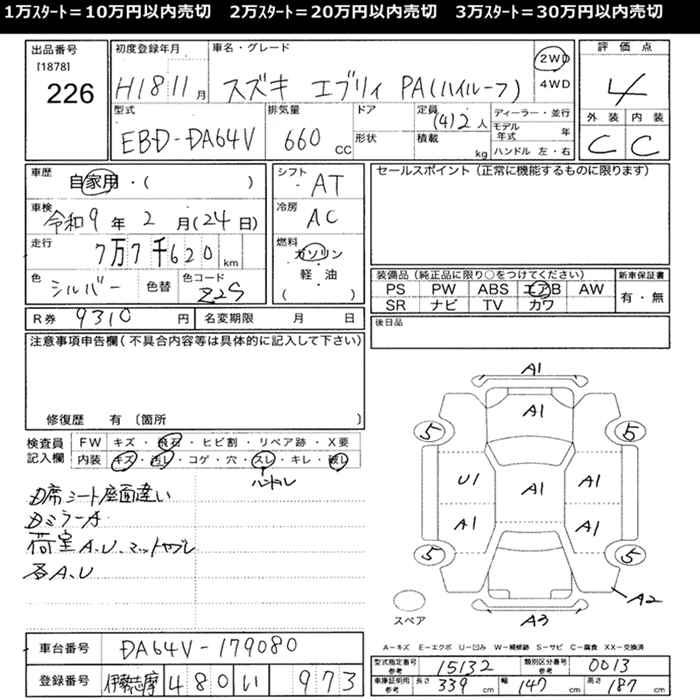 1万ｽﾀｰﾄ＝10万円以内売切　2万ｽﾀｰﾄ＝20万円以内売切　3万ｽﾀｰﾄ＝30万円以内売切
出品番号
[1878]
226
初度登録年月
H18 11月
車名・グレード
スズキ エブリィ PA(ハイルーフ)
2WD
4WD
評価点
4
外装 内装
C C
型式
EBD-DA64V
排気量
660 CC
ドア
形状
定員
(4)2人
積載
kg
ディーラー・並行
モデル年式 年
ハンドル 左・右
車歴
自家用・( )
車検
令和9年2月(24日)
走行
7万7千620km
色
シルバー
色替
色コード
Z2S
シフト
AT
冷房
AC
燃料
ガソリン
・
軽・油
( )
セールスポイント (正常に機能するものに限ります)
装備品 (純正品に限り○をつけてください)
PS PW ABS エアB AW
SR ナビ TV カワ
新車保証書
有・無
R券 9310円
名変期限 月 日
後日品
注意事項申告欄(不具合内容等は具体的に記入して下さい)
修復歴 有 〔箇所 〕
検査員記入欄
FW キズ・飛石・ヒビ割・リペア跡・X要
内装 キズ・汚レ・コゲ・穴・スレ・キレ・破レ
ハンドル
D席シート座面違い
Dミラー A
荷室 A、U、マットヤブレ
各A、U
A1
A1
5 5
U1 A1 A1
A1 A1
5 5
A2
スペア
A3
A－キズ E－エクボ U－凹み W－補修跡 S－サビ C－腐食 XX－交換済
車台番号 DA64V-179080
登録番号 伊勢志摩 480 い 973
型式指定番号 参考 15132
類別区分番号 参考 0013
車庫証明用 参考 長さ 339cm 幅 147cm 高さ 187cm